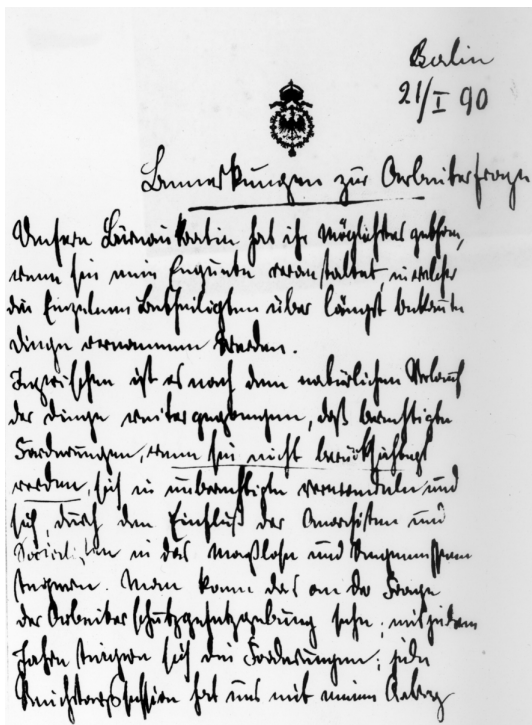 Berlin
21/I 90
Bemerkungen zur Arbeiterfrage
Unsere Bureaukratie hat ihr Möglichstes gethan,
wenn sie eine Enquete veranstaltet, in welcher
die Einzelnen Betheiligten über längst bekannte
Dinge vernommen werden.
Inzwischen ist es nach dem natürlichen Verlauf
der Dinge weiter gegangen, daß berechtigte
Forderungen, wenn sie nicht berücksichtigt
werden, sich in unberechtigte verwandeln und
sich, durch den Einfluß der Anarchisten und
Socialisten in das Maßlose und Ungemessene
steigern. Man kann das an der Frage
der Arbeiterschutzgesetzgebung sehn; mit jedem
Jahre steigern sich die Forderungen; jede
Reichstagssession hat uns mit einem